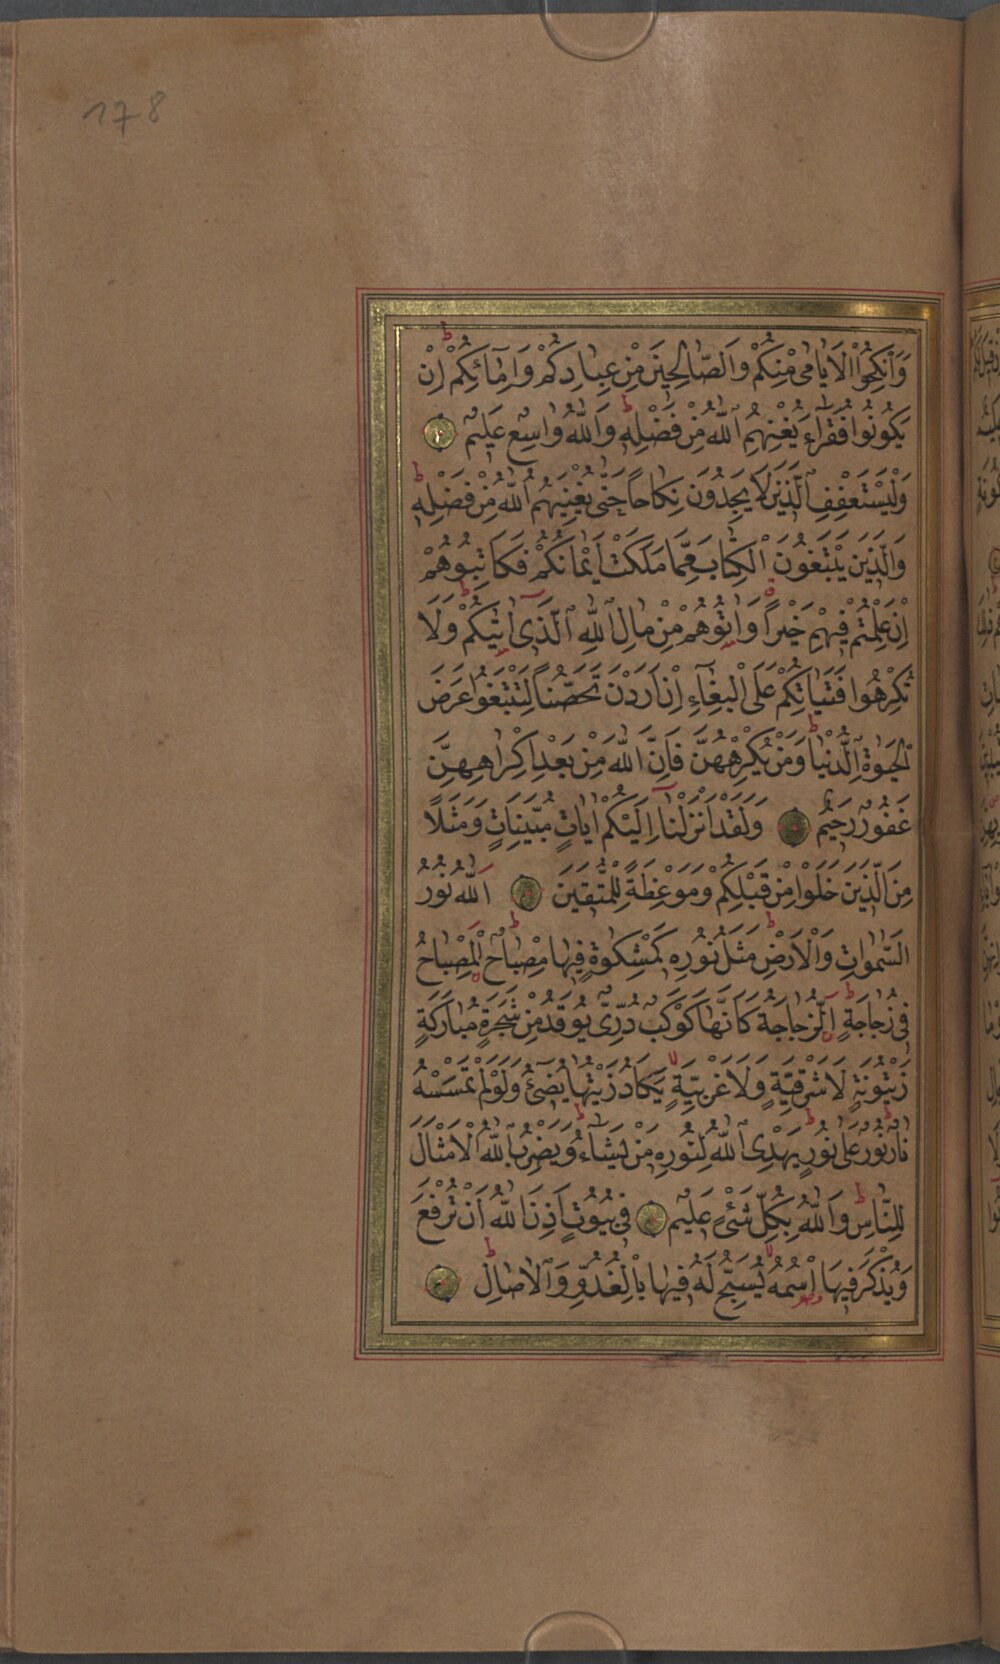 178
وَاَنْكِحُوا الْاَيَامٰى مِنْكُمْ وَالصَّالِحِينَ مِنْ عِبَادِكُمْ وَاِمَائِكُمْ اِنْ
يَكُونُوا فُقَرَاءَ يُغْنِهِمُ اللّٰهُ مِنْ فَضْلِهِ وَاللّٰهُ وَاسِعٌ عَلِيمٌ
وَلْيَسْتَعْفِفِ الَّذِينَ لَا يَجِدُونَ نِكَاحًا حَتّٰى يُغْنِيَهُمُ اللّٰهُ مِنْ فَضْلِهِ
وَالَّذِينَ يَبْتَغُونَ الْكِتَابَ مِمَّا مَلَكَتْ اَيْمَانُكُمْ فَكَاتِبُوهُمْ
اِنْ عَلِمْتُمْ فِيهِمْ خَيْرًا وَاٰتُوهُمْ مِنْ مَالِ اللّٰهِ الَّذِى اٰتٰيكُمْ وَلَا
تُكْرِهُوا فَتَيَاتِكُمْ عَلَى الْبِغَاءِ اِنْ اَرَدْنَ تَحَصُّنًا لِتَبْتَغُوا عَرَضَ
الْحَيٰوةِ الدُّنْيَا وَمَنْ يُكْرِهْهُنَّ فَاِنَّ اللّٰهَ مِنْ بَعْدِ اِكْرَاهِهِنَّ
غَفُورٌ رَحِيمٌ وَلَقَدْ اَنْزَلْنَا اِلَيْكُمْ اٰيَاتٍ مُبَيِّنَاتٍ وَمَثَلًا
مِنَ الَّذِينَ خَلَوْا مِنْ قَبْلِكُمْ وَمَوْعِظَةً لِلْمُتَّقِينَ اَللّٰهُ نُورُ
السَّمٰوَاتِ وَالْاَرْضِ مَثَلُ نُورِهِ كَمِشْكٰوةٍ فِيهَا مِصْبَاحٌ الْمِصْبَاحُ
فِى زُجَاجَةٍ الزُّجَاجَةُ كَاَنَّهَا كَوْكَبٌ دُرِّىٌّ يُوقَدُ مِنْ شَجَرَةٍ مُبَارَكَةٍ
زَيْتُونَةٍ لَا شَرْقِيَّةٍ وَلَا غَرْبِيَّةٍ يَكَادُ زَيْتُهَا يُضِىءُ وَلَوْ لَمْ تَمْسَسْهُ
نَارٌ نُورٌ عَلٰى نُورٍ يَهْدِى اللّٰهُ لِنُورِهِ مَنْ يَشَاءُ وَيَضْرِبُ اللّٰهُ الْاَمْثَالَ
لِلنَّاسِ وَاللّٰهُ بِكُلِّ شَىْءٍ عَلِيمٌ فِى بُيُوتٍ اَذِنَ اللّٰهُ اَنْ تُرْفَعَ
وَيُذْكَرَ فِيهَا اسْمُهُ يُسَبِّحُ لَهُ فِيهَا بِالْغُدُوِّ وَالْاٰصَالِ